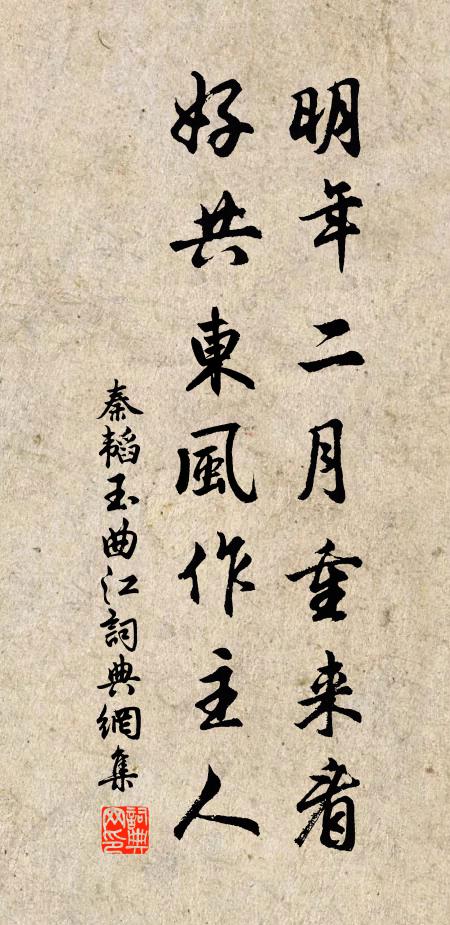 明年二月重来看
好共東風作主人
秦韜玉曲江詞典網集
詞典网印